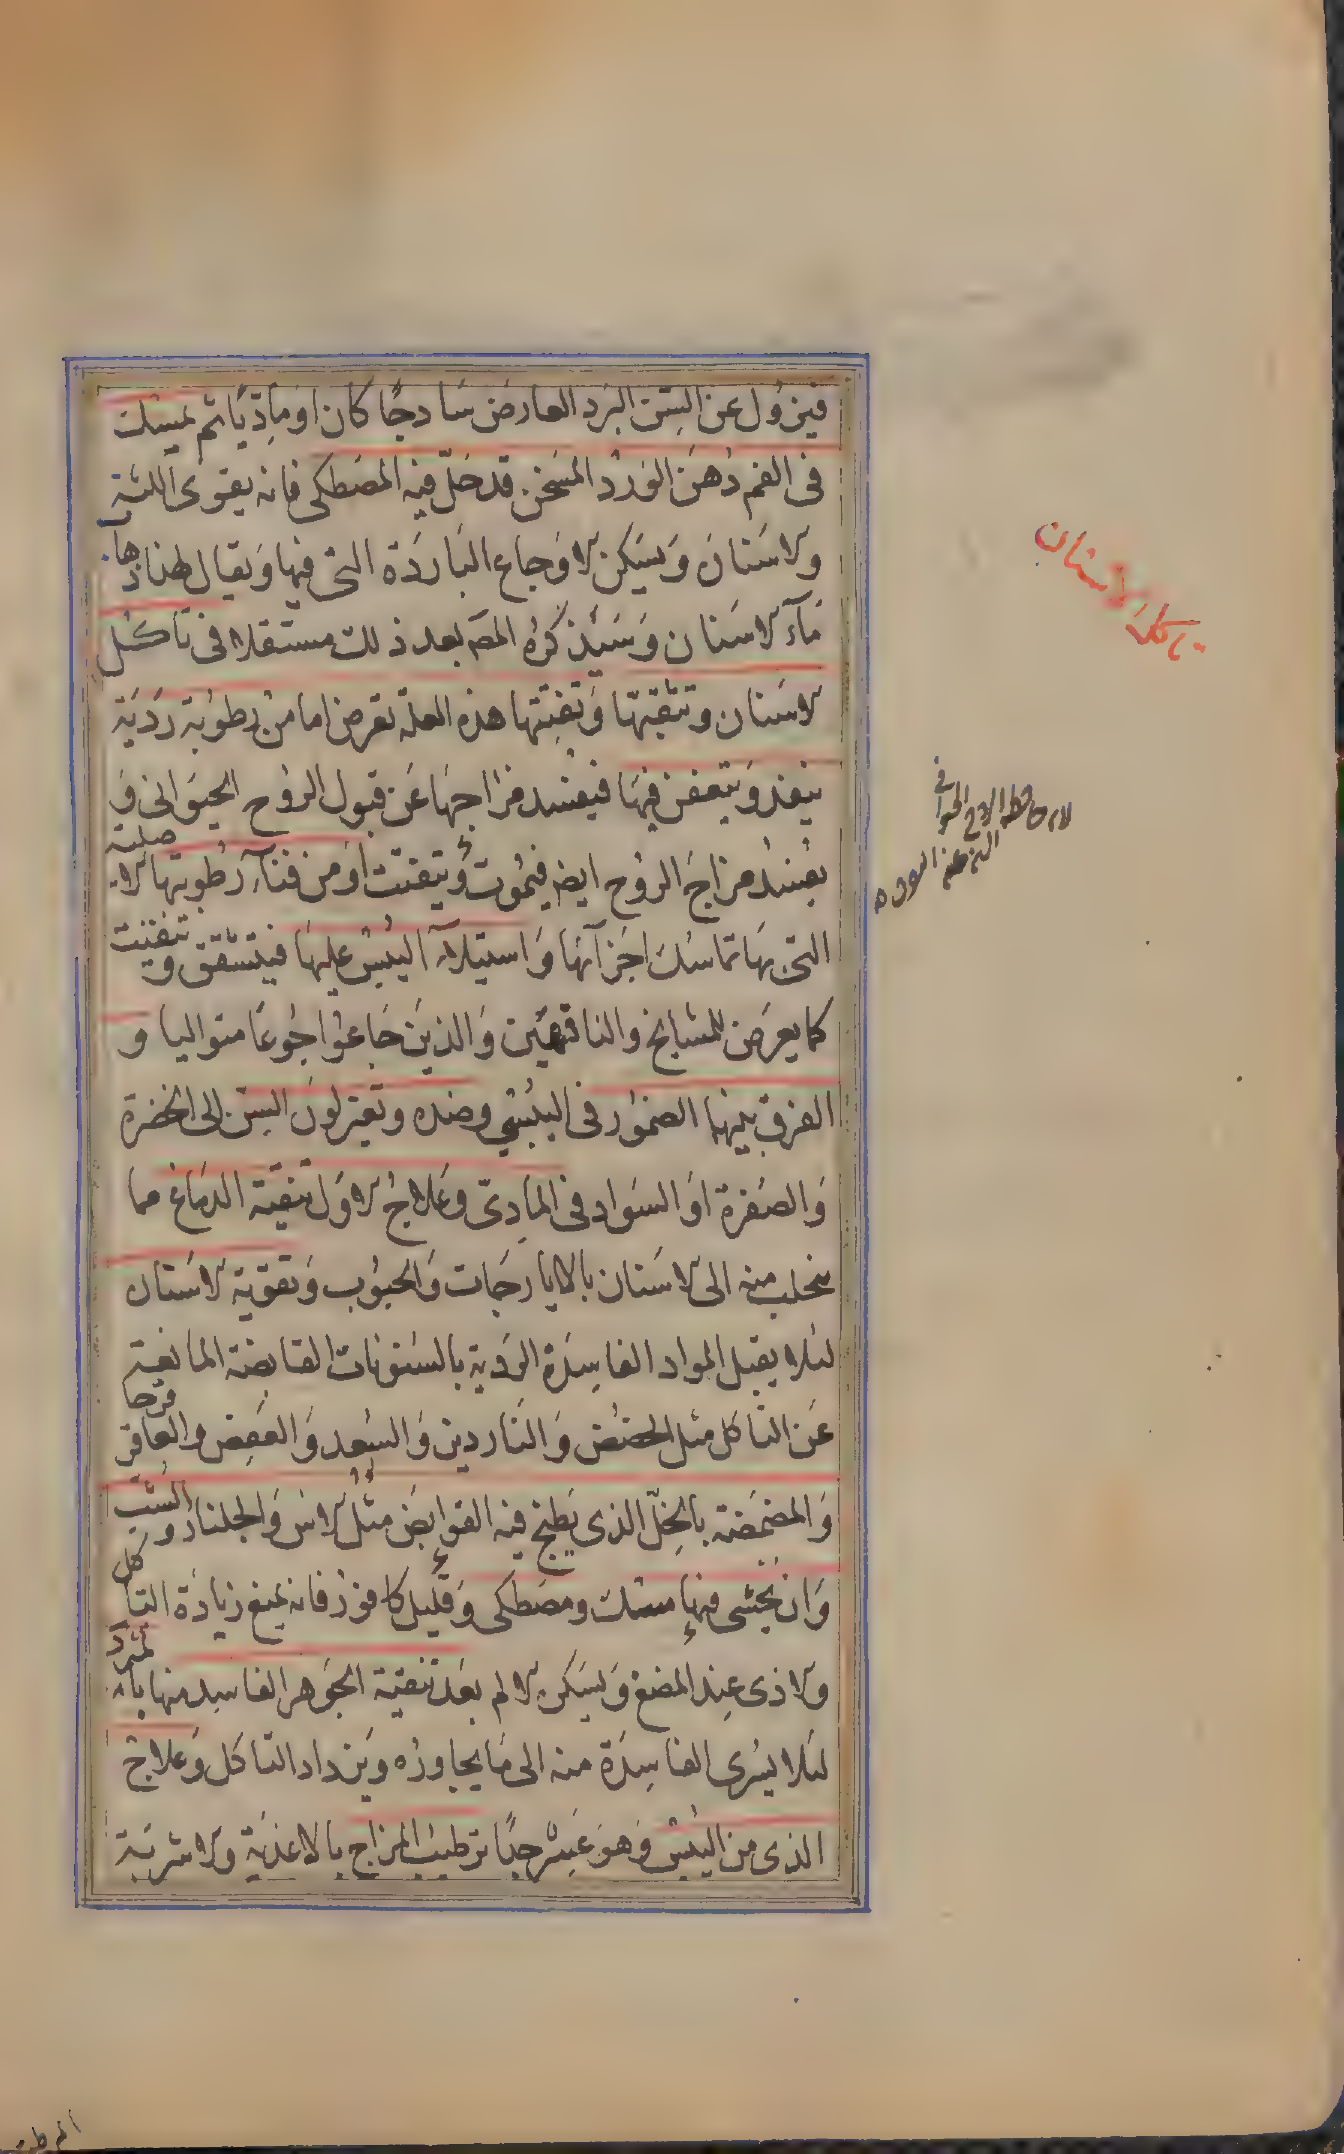 فيزول عن السن البرد العارض ساذجا كان او ماديا ثم يمسك
فى الفم دهن الورد المسخن قد حل فيه المصطكى فانه يقوى اللثة
والاسنان ويسكن الاوجاع الباردة التى فيها ويقال لهذا ذهاب
ماء الاسنان وسيذكره المصـ بعد ذلك مستقلا فى تاكل
الاسنان وتثقبها وتفتتها هذه العلة تعرض اما من رطوبة ردية
ينفذ ويتعفن فيها فيفسد مزاجها عن قبول الروح الحيوانى و
يفسد مزاج الروح ايضـ فيموت ويتفتت او من فناء رطوبتها الاصلية
التى بها تماسك اجزائها واستيلاء اليبس عليها فيتشقق ويتفتت
كما يعرض للمشايخ والناقهين والذين جاعوا جوعا متواليا و
الفرق بينهما الضمور فى اليبسي وضده وتغير لون السن الى الخضرة
والصفرة او السواد فى المادى وعلاج الاول تنقية الدماغ مما
ينحلب منه الى الاسنان بالايارجات والحبوب وتقوية الاسنان
لئلا يقبل المواد الفاسدة الردية بالسنونات القابضة المانعة
عن التاكل مثل الحضض والناردين والسعد والعفص والعاقر قرحا
والمضمضة بالخل الذى يطبخ فيه القوابض مثل الاس والجلنار والشب
وان يحشى فيها مسك ومصطكى وقليل كافور فانه يمنع زيادة التاكل
والاذى عند المضغ ويسكن الالم بعد تنقية الجوهر الفاسد منها بالمبرد
لئلا يسرى الفاسدة منه الى ما يجاوزه ويزداد التاكل وعلاج
الذى من اليبس وهو عسر جدا ترطيب المزاج بالاغذية والاشربة
تاكل الاسنان